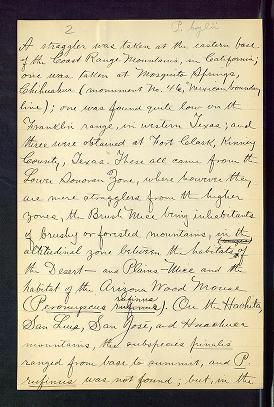 2
P. boylii
A straggler was taken at the eastern base
of the Coast Range Mountains, in California;
one was taken at Mosquito Springs,
Chihuahua (monument No. 46, Mexican boundary
line); one was found quite low on the
Franklin range, in western Texas; and
three were obtained at Fort Clark, Kinney
County, Texas. These all came from the
Lower Sonoran Zone, where however they
are mere stragglers from the higher
zones, the Brush Mice being inhabitants
of brushy or forested mountains, in the
altitudinal zone between the habitats of
the Desert- and Plains-Mice and the
habitat of the Arizona Wood Mouse
rufinus
(Peromyscus rufinus). On the Hachita,
San Luis, San José, and Huachuca
mountains, the subspecies pinalis
ranged from base to summit, and P.
rufinus was not found; but, in the